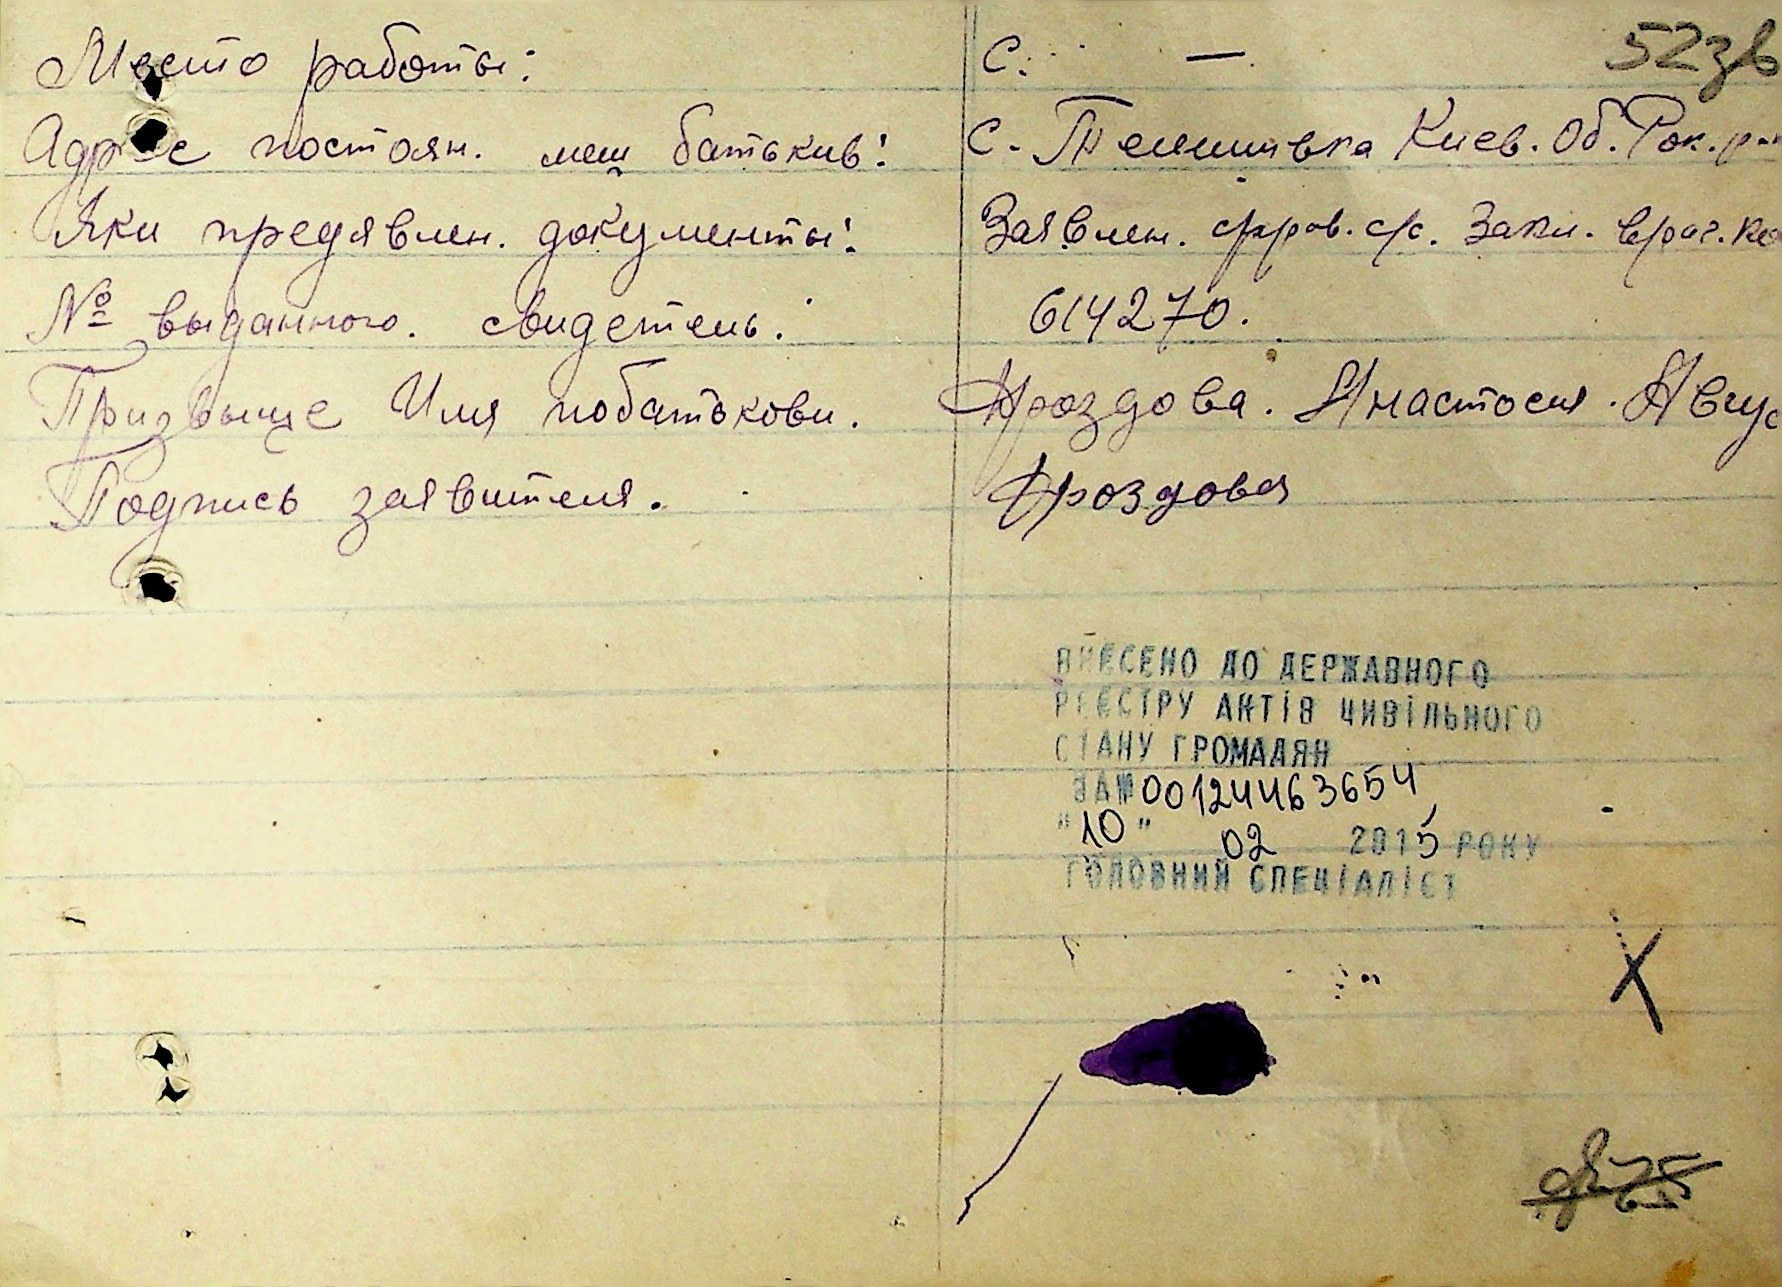 52зв
Место работы: С. —
Адрес постоян. меш батькив: С. Телешивка Киев. Об. Рок. р-н
Яки предявлен. документы: Заявлен. с/с. Закл. врач. ко
№ выданного. свидетель. 614270.
Призвыще Имя побатькови. Дроздова. Анастосия. Авгус
Подпись заявителя. Дроздова
ВНЕСЕНО ДО ДЕРЖАВНОГО
РЕЄСТРУ АКТІВ ЦИВІЛЬНОГО
СТАНУ ГРОМАДЯН
ЗА № 00124463654
"10" 02 2015 РОКУ
ГОЛОВНИЙ СПЕЦІАЛІСТ